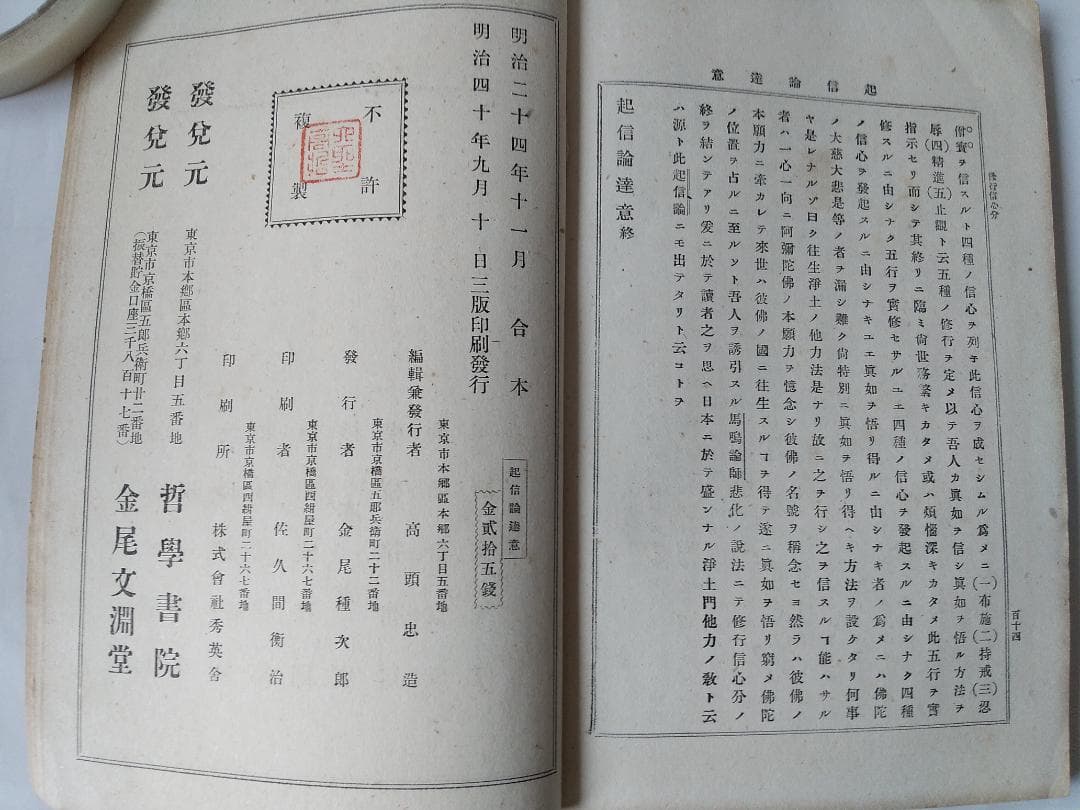 起信論達意
修行信心分
百十四
僧寶ヲ信スルト四種ノ信心ヲ列子此信心ヲ成セシムル爲メニ(一布施(二持戒(三忍
辱(四精進(五止觀ト云五種ノ修行ヲ定メ以テ吾人カ眞如ヲ信シ眞如ヲ悟ル方法ヲ
指示セリ而シテ其終リニ臨ミ尙世務繁キカタメ或ハ煩惱深キカタメ此五行ヲ實
修スルニ由シナク五行ヲ實修セサルユエ四種ノ信心ヲ發起スルニ由シナク四種
ノ信心ヲ發起スルニ由シナキユエ眞如ヲ悟リ得ルニ由シナキ者ノ爲メニハ佛陀
ノ大慈大悲是等ノ者ヲ漏シ難ク尙特別ニ眞如ヲ悟リ得ヘキ方法ヲ設ケタリ何事
ヤ是レナルゾ曰ク往生淨土ノ他力法是ナリ故ニ之ヲ行シ之ヲ信スルヿ能ハサル
者ハ一心一向ニ阿彌陀佛ノ本願力ヲ憶念シ彼佛ノ名號ヲ稱念セヨ然ラハ彼佛ノ
本願力ニ牽カレテ來世ハ彼佛ノ國ニ往生スルコヲ得テ遂ニ眞如ヲ悟リ窮メ佛陀
ノ位置ヲ占ルニ至ルント吾人ヲ誘引スル馬鳴論師悲化ノ說法ニテ修行信心分ノ
終ヲ結ンテアリ爰ニ於テ讀者之ヲ思ヘ日本ニ於テ盛ンナル淨土門他力ノ敎ト云
ハ源ト此起信論ニモ出テタリト云コトヲ
起信論達意終
明治二十四年十一月合本
明治四十年九月十日三版印刷發行
起信論達意
金貳拾五錢
不許
複製
東京市本鄉區本鄉六丁目五番地
編輯兼發行者 高頭忠造
東京市京橋區五郎兵衛町二十二番地
發行者 金尾種次郎
東京市京橋區四紺屋町二十六七番地
印刷者 佐久間衡治
東京市京橋區四紺屋町二十六七番地
印刷所 株式會社秀英舍
東京市本鄉區本鄉六丁目五番地
發兌元 哲學書院
東京市京橋區五郎兵衛町廿二番地
(振替貯金口座三千八百十七番)
發兌元 金尾文淵堂